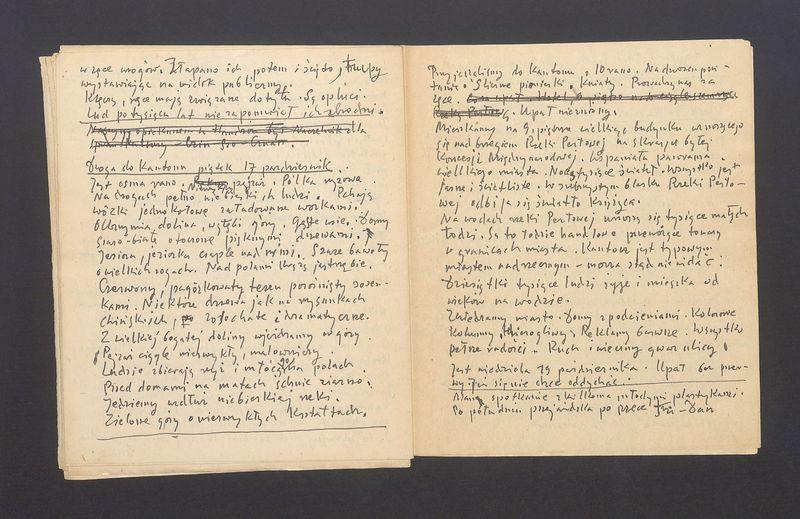 w ręce wrogów. Złapano ich potem i ścięto, trupy
wystawiając na widok publiczny.
Klęczą, ręce mają związane do tyłu. Są opluci.
Lud po tysiącu lat nie zapomniał ich zbrodni.
Naszym opiekunem w był Naczelnik dla
Droga do Kantonu piątek 17 października
Jest ósma rano. pejzaż. Półka ryżowa.
Na drogach pełno niebieskich ludzi. Pchają
wózki jednokołowe załadowane workami.
Olbrzymia dolina, w głębi góry. Gęste wsie. Domy
szaro-białe otoczone pięknymi drzewami.
Jeziora, jeziorka ciągle nad nimi. Szare bawoły
o wielkich rogach. Nad polami krążą jastrzębie.
Czerwony, pagórkowaty teren porośnięty sosen-
kami. Niektóre drzewa jak na rysunkach
chińskich, rosochate i dramatyczne.
Z wielkiej bogatej doliny wjeżdżamy w góry.
Pejzaż ciągle niezwykły, malowniczy.
Ludzie zbierają ryż i młócą go na polach.
Przed domami na matach schnie ziarno.
Jedziemy wzdłuż niebieskiej rzeki.
Zielone góry o niezwykłych kształtach.
Przyjechaliśmy do Kantonu o 10 rano. Na dworcu powi-
tanie. Śliczne pionierki, kwiaty. Prowadzą nas za
ręce.
Rzeką Perłową. Upał niezmierny.
Mieszkamy na 9 piętrze wielkiego budynku wznoszącego
się nad brzegiem Rzeki Perłowej na skraju byłej
Koncesji Międzynarodowej. Wspaniała panorama
wielkiego miasta. Nocą tysiące świateł. Wszystko jest
jasne i świetliste. W srebrzystym blasku Rzeki Perło-
wej odbija się światło księżyca.
Na wodach rzeki Perłowej unoszą się tysiące małych
łodzi. Są to łodzie handlowe przewożące towary
w granicach miasta. Kanton jest typowym
miastem nadrzecznym – morza stąd nie widać.
Dziesiątki tysięcy ludzi żyje i mieszka od
wieków na wodzie.
Zwiedzamy miasto. Domy z podcieniami. Kolorowe
kolumny, hieroglify, Reklamy barwne. Wszystko
pełne radości. Ruch i wieczny gwar ulicy.
Jest niedziela 19 października. Upał od pierw-
Mamy spotkanie z kilkoma młodymi plastykami.
Po południu przejażdżka po rzece